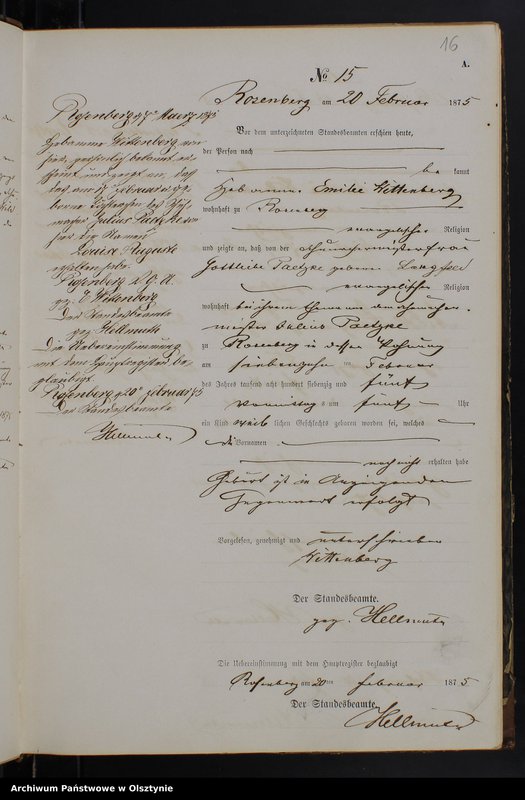 16
A.
No 15
Rosenberg am 20 Februar 1875
Vor dem unterzeichneten Standesbeamten erschien heute,
der Person nach
be kannt
Hebamme Emilie Wittenberg
wohnhaft zu Rosenberg
evangelischer Religion
und zeigte an, daß von der Schuhmachermeisterfrau
Gottliebe Paetzke geborne
evangelischer Religion
wohnhaft bei ihrem Ehemann dem Schuhmacher-
meister Julius Paetzke
zu Rosenberg in dessen Wohnung
am siebenzehn ten Februar
des Jahres tausend acht hundert siebenzig und fünf
Vormittags um fünf Uhr
ein Kind weib lichen Geschlechts geboren worden sei, welches
die Vornamen
noch nicht erhalten habe
Geburt ist in
Gegenwart erfolgt
Vorgelesen, genehmigt und unterschrieben
Wittenberg
Der Standesbeamte.
gez. Hellmuth
Die Uebereinstimmung mit dem Hauptregister beglaubigt
Rosenberg am 20ten Februar 1875
Der Standesbeamte.
Hellmuth
Rosenberg, d März 1875
Hebamme Wittenberg, der
Person, persönlich bekannt, er-
scheint und zeigt an, daß
das am Februar ge-
borne des Schuh-
macher Julius Paetzke
die Namen
Louise Auguste
erhalten habe.
Rosenberg
gez. E Wittenberg
Der Standesbeamte
gez. Hellmuth
Die Uebereinstimmung
mit dem Hauptregister be-
glaubigt
Rosenberg
Der Standesbeamte
Hellmuth
Archiwum Państwowe w Olsztynie